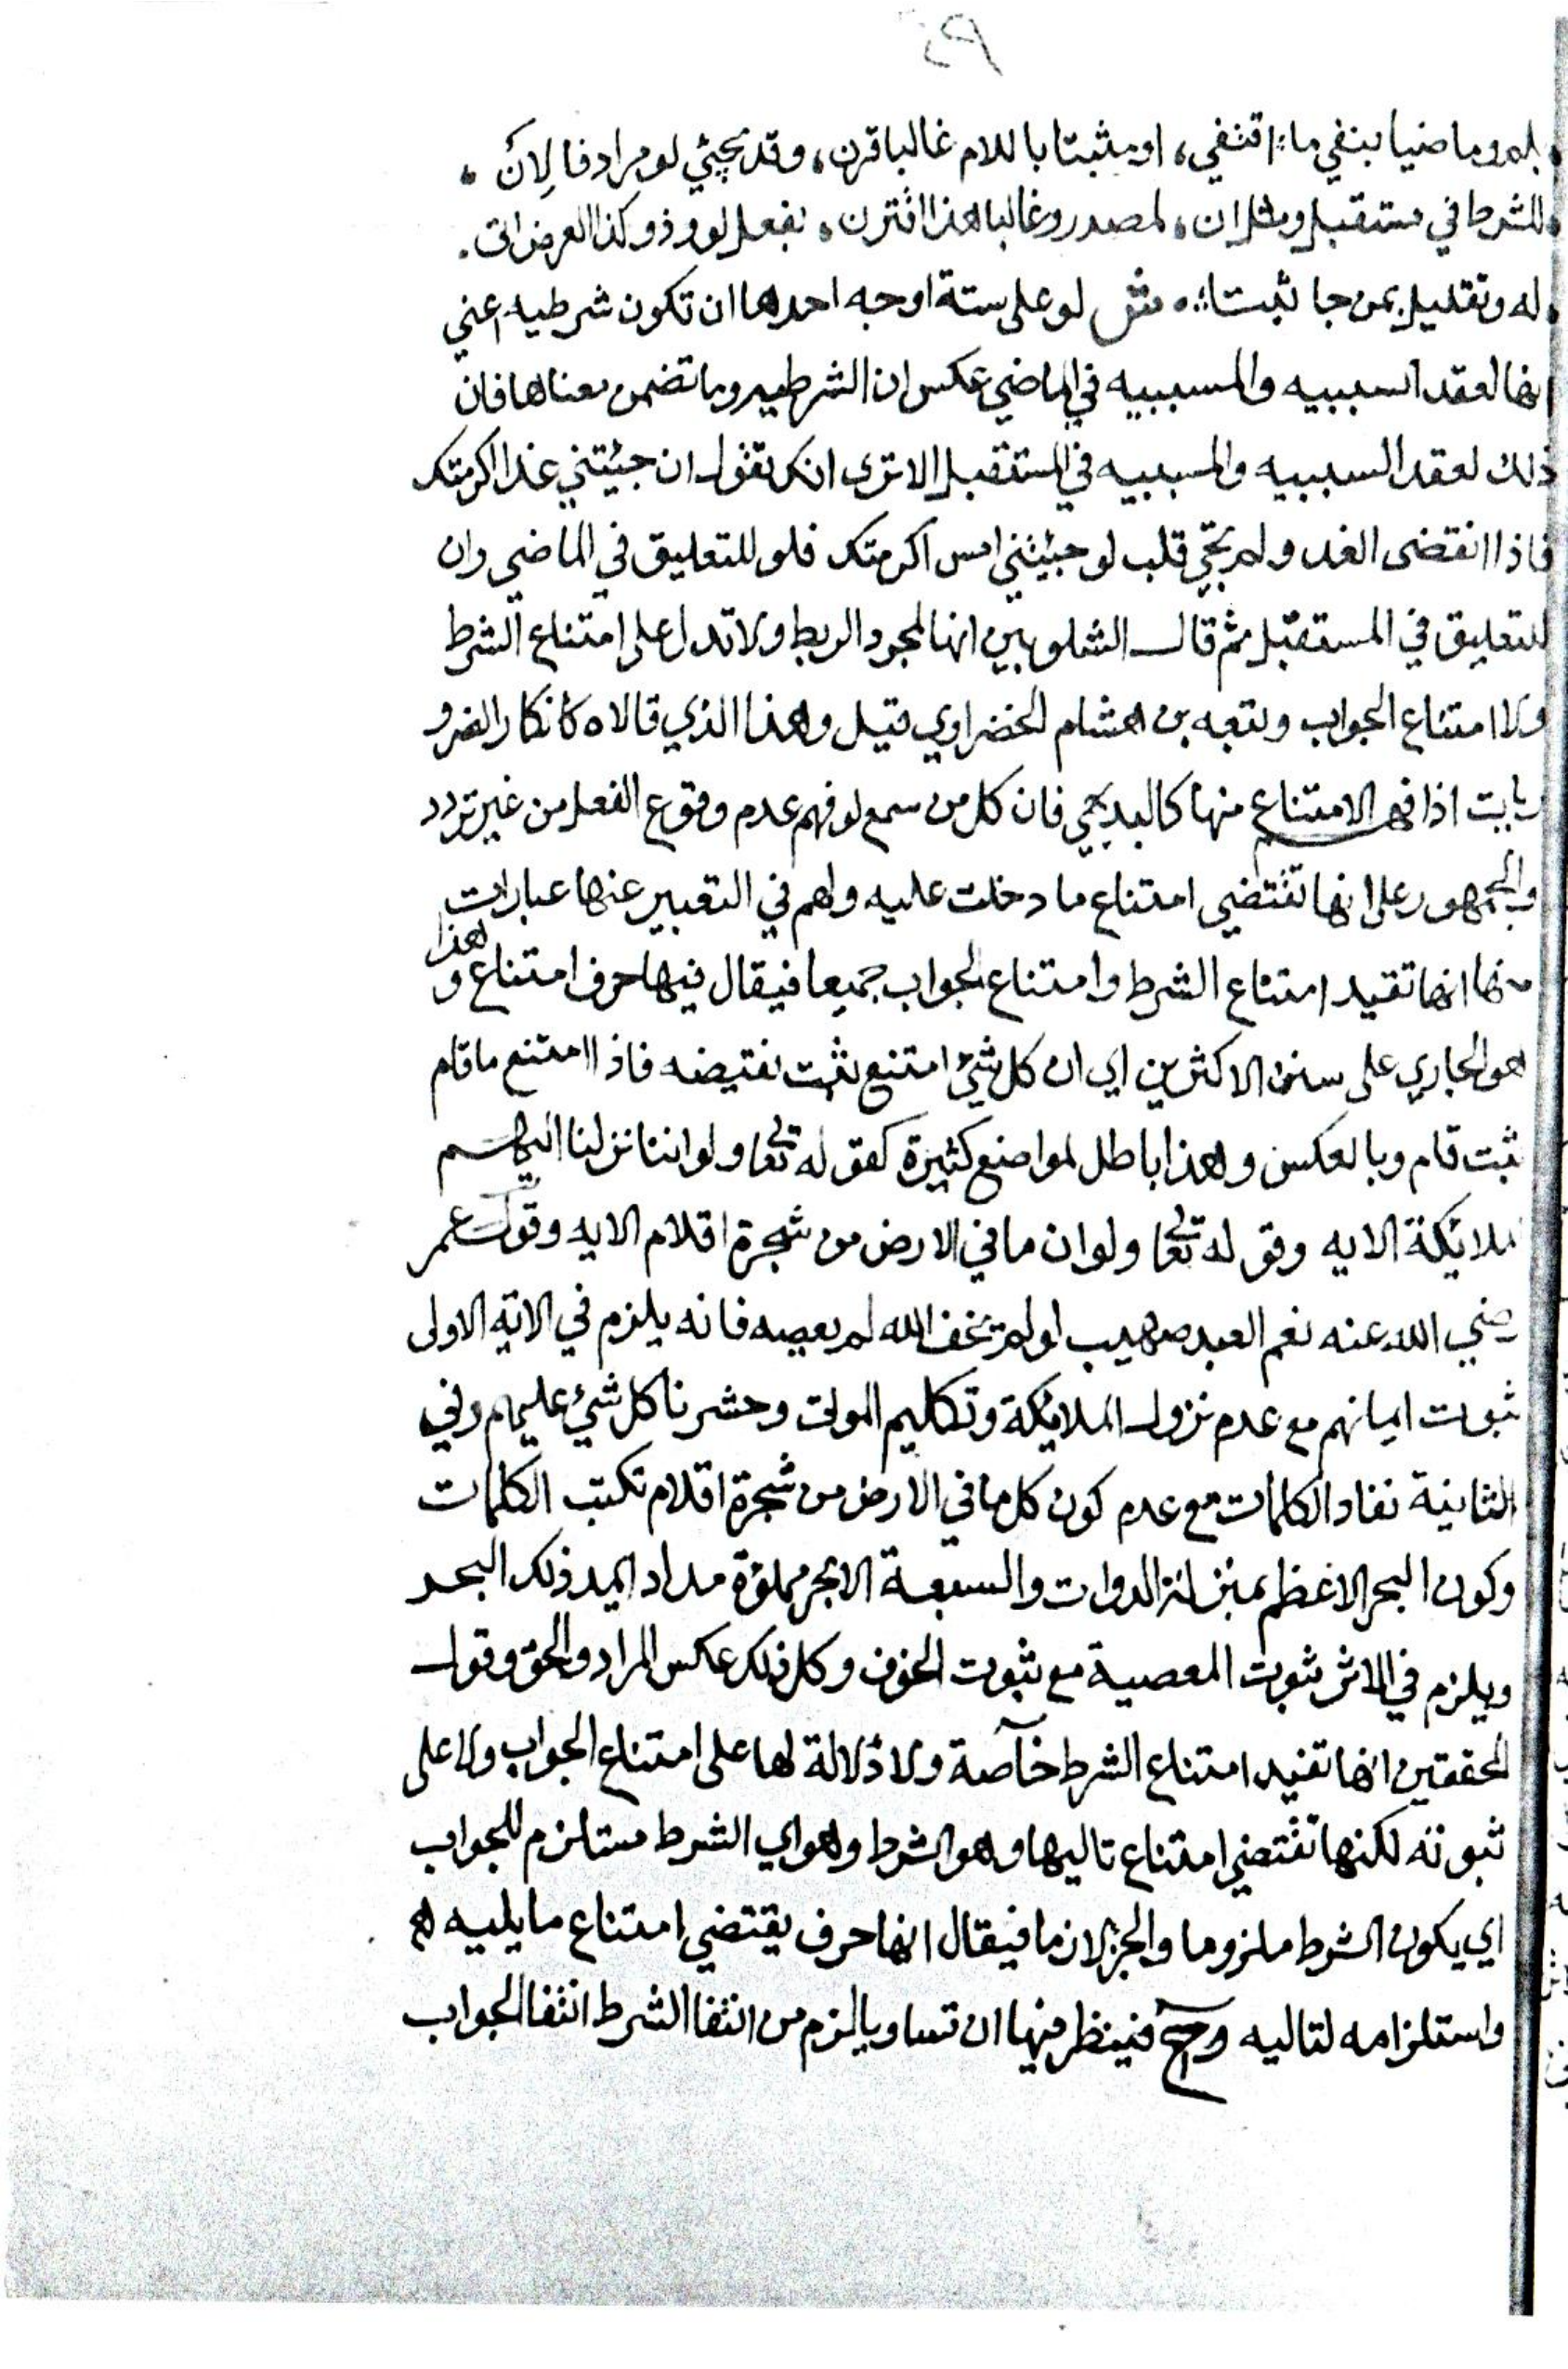 بلم وماضيا بنفي ما اقتفي، او مثبتا باللام غالبا قرن، وقد يجيئي لو مرادفا لان،
للشرط في مستقبل ومثل ان، لمصدر وغالبا هذا اقترن، بفعل لو وذو كذا العرض اتى.
له وتقليل بمن جا ثبتا، مثل لو على ستة اوجه احدها ان تكون شرطيه اعني
انها لعقد السببيه والمسببيه في الماضي عكس ان الشرطيه وما تضمن معناها فان
ذلك لعقد السببيه والمسببيه في المستقبل الا ترى انك تقول ان جيئتني غدا اكرمتك
فاذا انقضى الغد ولم يجئ قلت لو جيئتني امس اكرمتك فلو للتعليق في الماضي وان
للتعليق في المستقبل ثم قال الشلوبين انها لمجرد الربط ولا تدل على امتناع الشرط
ولا امتناع الجواب وتبعه بن هشام الخضراوي قيل وهذا الذي قالاه كانكار الضرو
ريات اذ فهم الامتناع منها كالبديهي فان كل من سمع لو فهم عدم وقوع الفعل من غير تردد
والجمهور على انها تقتضي امتناع ما دخلت عليه ولهم في التعبير عنها عبارات
منها انها تفيد امتناع الشرط وامتناع الجواب جميعا فيقال فيها حرف امتناع وهذا
هو الجاري على سنن الاكثرين اي ان كل شيئ امتنع ثبت نقيضه فاذا امتنع ما قام
ثبت قام وبالعكس وهذا باطل لمواضع كثيرة كقوله تعا ولو اننا نزلنا اليهم
الملايكة الايه وقوله تعا ولو ان ما في الارض من شجرة اقلام الايه وقول عمر
رضي الله عنه نعم العبد صهيب لو لم يخف الله لم يعصه فانه يلزم في الاية الاولى
ثبوت ايمانهم مع عدم نزول الملايكة وتكليم الموتى وحشرنا كل شيئ عليهم وفي
الثانية نفاد الكلمات مع عدم كون كل ما في الارض من شجرة اقلام تكتب الكلمات
وكون البحر الاعظم بمنزلة الدوات والسبعة الابحر مملؤة مدادا يمد ذلك البحر
ويلزم في الاثر ثبوت المعصية مع ثبوت الخوف وكل ذلك عكس المراد والحق وقول
المحققين انها تفيد امتناع الشرط خآصة ولا دلالة لها على امتناع الجواب ولا على
ثبوته لكنها تقتضي امتناع تاليها وهو الشرط وهو اي الشرط مستلزم للجواب
اي يكون الشرط ملزوما والجزا لازما فيقال انها حرف يقتضي امتناع ما يليه
واستلزامه لتاليه وح فينظر فيها ان تساويا لزم من انتفا الشرط انتفا الجواب